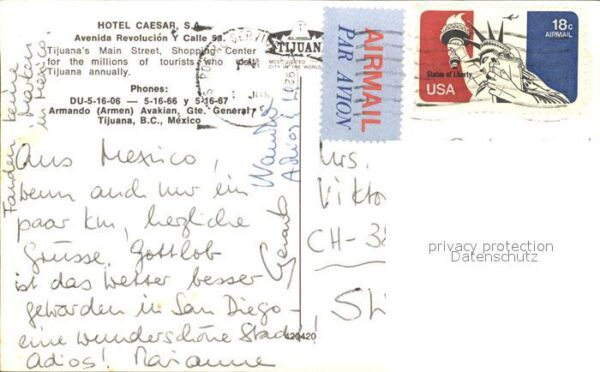 HOTEL CAESAR, S.A.
Avenida Revolución Y Calle 5a.
Tijuana's Main Street, Shopping Center
for the millions of tourists who visit
Tijuana annually.
Phones:
DU-5-16-06 — 5-16-66 y 5-16-67
Armando (Armen) Avakian, Gte. General
Tijuana, B.C., México
Fanden keine
Marken
in Mexico
Aus Mexico,
wenn auch nur ein
paar km, herzliche
Grüsse. Gottlob
ist das Wetter besser
geworden in San Diego -
eine wunderschöne Stadt!
Adios! Marianne
Adios!
420420
TIJUANA
MOST VISITED
CITY IN THE WORLD
AIRMAIL
PAR AVION
18c
AIRMAIL
Statue of Liberty
USA
Mrs.
Vikto
CH-38
privacy protection
Datenschutz